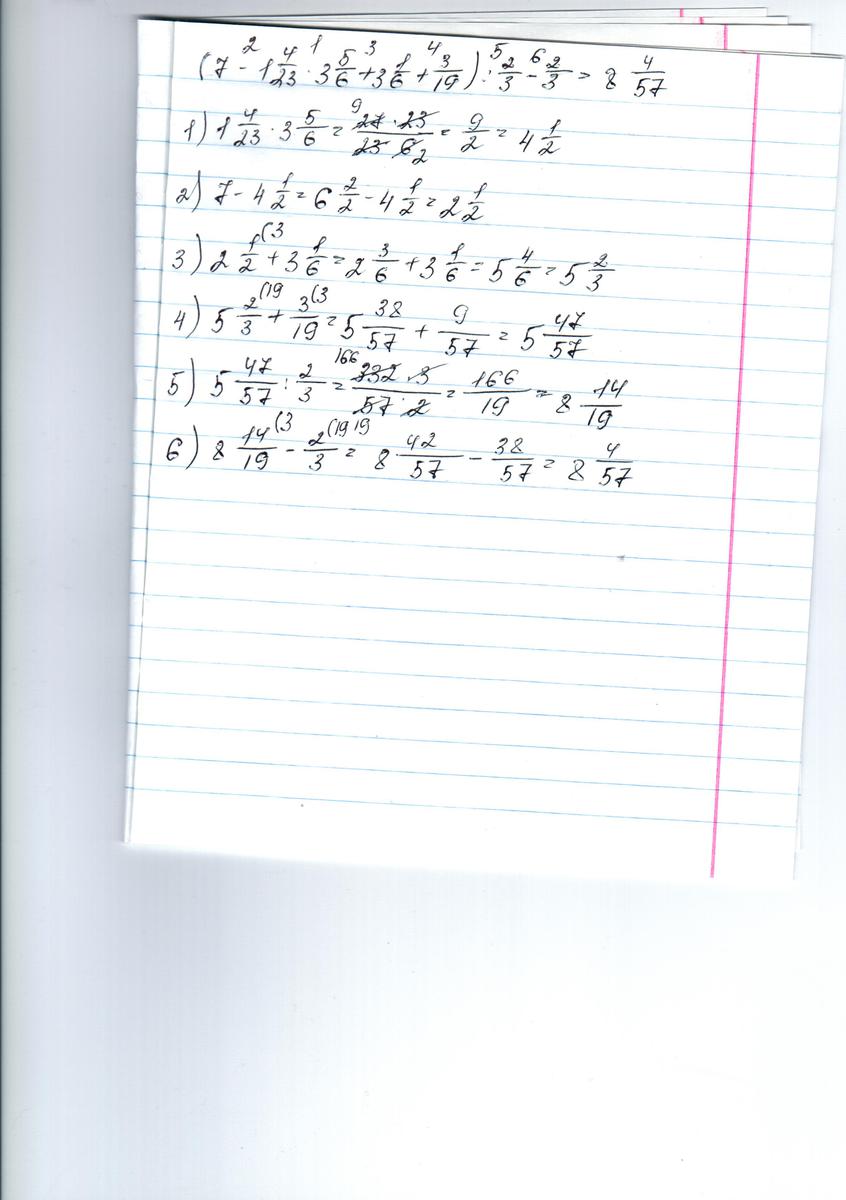 (7 - 1 4/23 · 3 5/6 + 3 1/6 + 3/19) : 2/3 - 2/3 = 8 4/57
1) 1 4/23 · 3 5/6 = 27 · 23 / 23 · 6 = 9/2 = 4 1/2
2) 7 - 4 1/2 = 6 2/2 - 4 1/2 = 2 1/2
3) 2 1/2 (3 + 3 1/6 = 2 3/6 + 3 1/6 = 5 4/6 = 5 2/3
4) 5 2/3 (19 + 3/19 (3 = 5 38/57 + 9/57 = 5 47/57
5) 5 47/57 : 2/3 = 332 · 3 / 57 · 2 = 166/19 = 8 14/19
6) 8 14/19 (3 - 2/3 (19 = 8 42/57 - 38/57 = 8 4/57